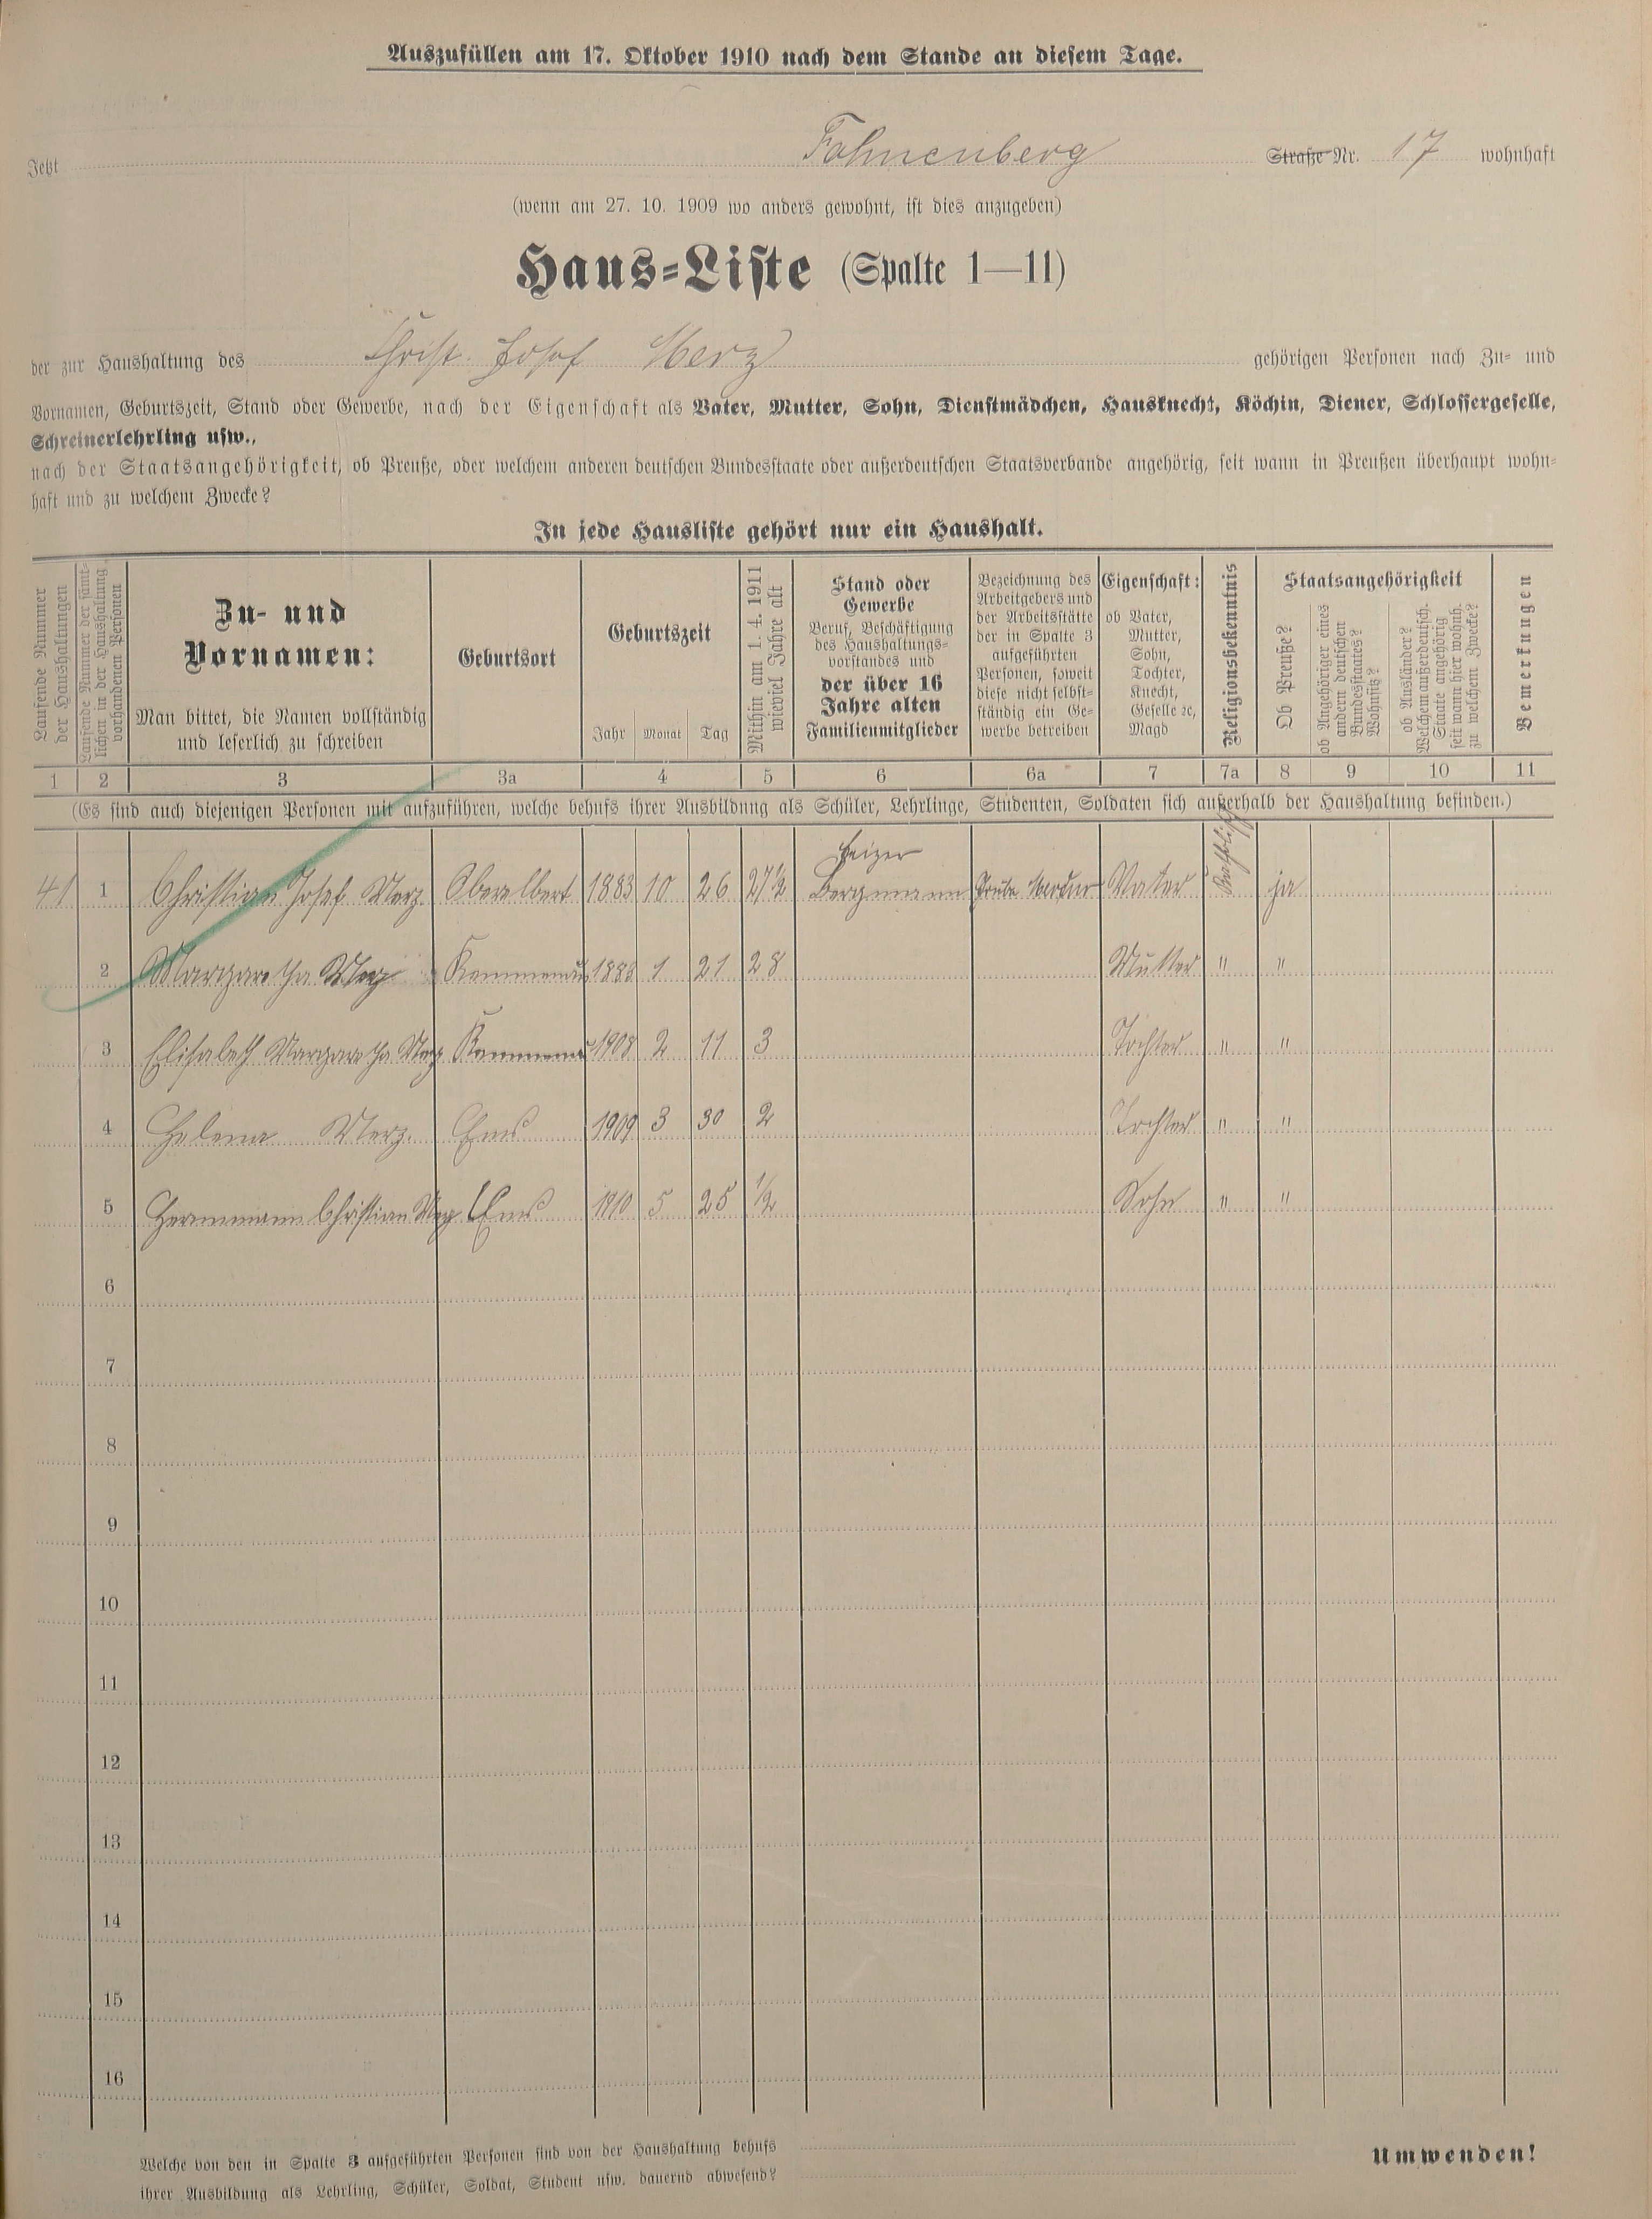 Auszufüllen am 17. Oktober 1910 nach dem Stande an diesem Tage.
Jetzt Fahnenberg Straße Nr. 17 wohnhaft
(wenn am 27. 10. 1909 wo anders gewohnt, ist dies anzugeben)
Haus-Liste (Spalte 1—11)
der zur Haushaltung des Christ. Josef Merz gehörigen Personen nach Zu- und
Vornamen, Geburtszeit, Stand oder Gewerbe, nach der Eigenschaft als Vater, Mutter, Sohn, Dienstmädchen, Hausknecht, Köchin, Diener, Schlossergeselle,
Schreinerlehrling usw.,
nach der Staatsangehörigkeit, ob Preuße, oder welchem anderen deutschen Bundesstaate oder außerdeutschen Staatsverbande angehörig, seit wann in Preußen überhaupt wohn-
haft und zu welchem Zwecke?
In jede Hausliste gehört nur ein Haushalt.
Laufende Nummer
der Haushaltungen
Laufende Nummer der sämt-
lichen in der Haushaltung
vorhandenen Personen
Zu- und
Vornamen:
Man bittet, die Namen vollständig
und leserlich zu schreiben
Geburtsort
Geburtszeit
Jahr Monat Tag
Mithin am 1. 4. 1911
wieviel Jahre alt
Stand oder
Gewerbe
Beruf, Beschäftigung
des Haushaltungs-
vorstandes und
der über 16
Jahre alten
Familienmitglieder
Bezeichnung des
Arbeitgebers und
der Arbeitsstätte
der in Spalte 3
aufgeführten
Personen, soweit
diese nicht selbst-
ständig ein Ge-
werbe betreiben
Eigenschaft:
ob Vater,
Mutter,
Sohn,
Tochter,
Knecht,
Geselle ec,
Magd
Religionsbekenntnis
Staatsangehörigkeit
Ob Preuße?
ob Angehöriger eines
andern deutschen
Bundesstaates?
Wohnsitz?
ob Ausländer?
Welchem außerdeutsch.
Staate angehörig
seit wann hier wohnh.
zu welchem Zwecke?
Bemerkungen
1 2 3 3a 4 5 6 6a 7 7a 8 9 10 11
(Es sind auch diejenigen Personen mit aufzuführen, welche behufs ihrer Ausbildung als Schüler, Lehrlinge, Studenten, Soldaten sich außerhalb der Haushaltung befinden.)
Heizer
41 1 Christian Josef Merz. Oberelbert 1883 10 26 27½ Bergmann Grube Merkur Vater Katholisch ja
2 Margaretha Merz Kemmenau 1883 1 21 28 Mutter " "
3 Elisabeth Margaretha Merz Kemmenau 1908 2 11 3 Tochter " "
4 Helena Merz. Ems 1909 3 30 2 Tochter " "
5 Hermmann Christian Merz Ems 1910 5 25 1/2 Sohn " "
6
7
8
9
10
11
12
13
14
15
16
Welche von den in Spalte 3 aufgeführten Personen sind von der Haushaltung behufs
ihrer Ausbildung als Lehrling, Schüler, Soldat, Student usw. dauernd abwesend?
Umwenden!